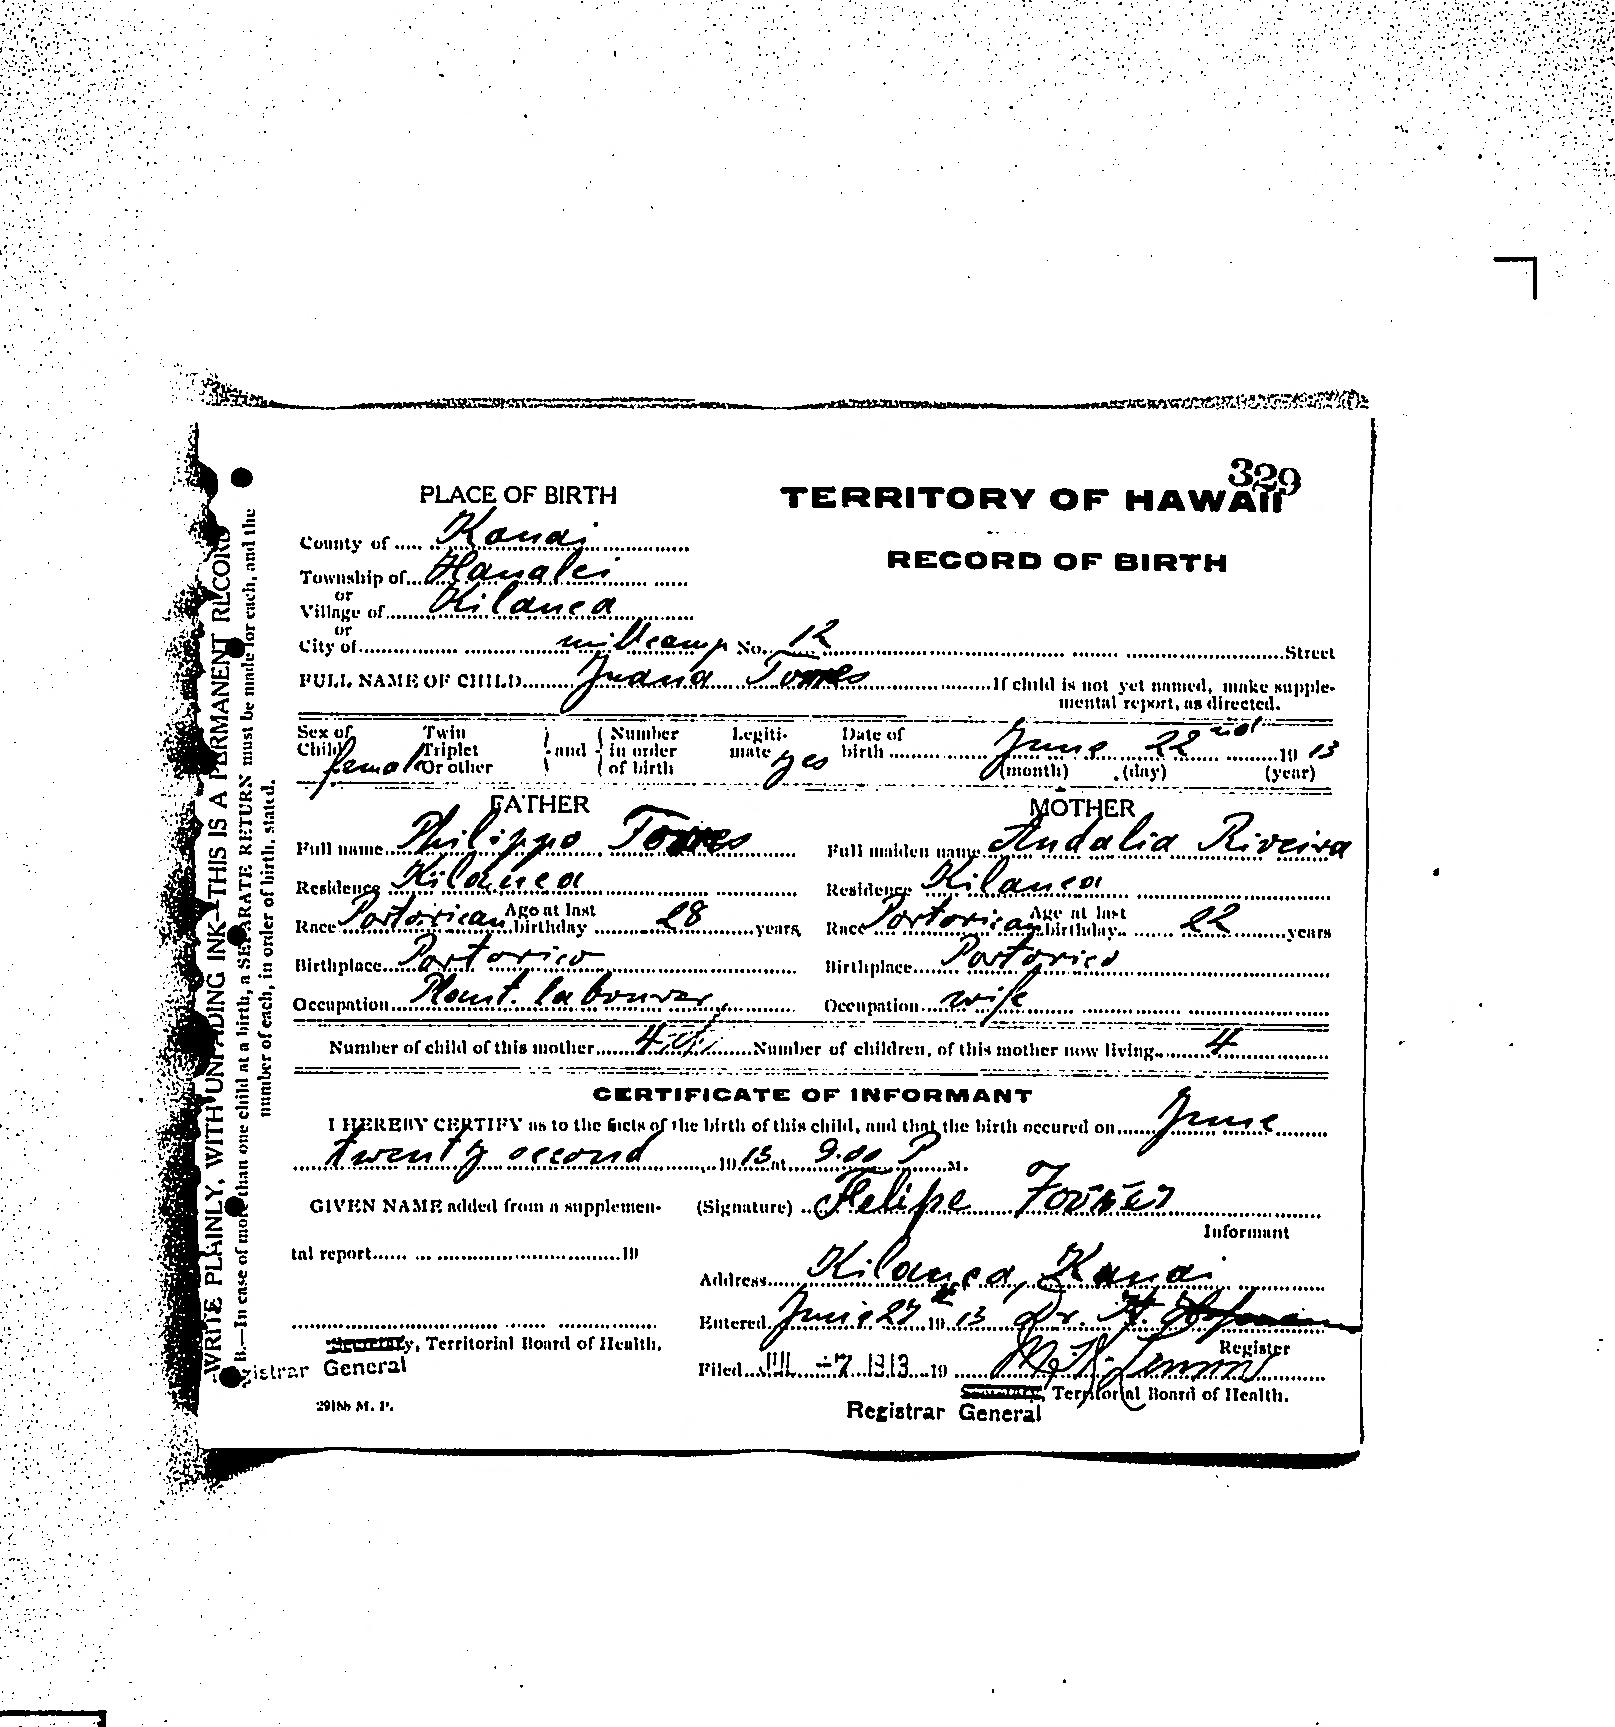 329
PLACE OF BIRTH
TERRITORY OF HAWAII
County of Kauai
RECORD OF BIRTH
Township of Hanalei
or
Village of Kilauea
or
City of millcamp No. 12 Street
FULL NAME OF CHILD Juana Torres If child is not yet named, make supple-
mental report, as directed.
Sex of Child female
Twin Triplet Or other } and { Number in order of birth
Legiti- mate yes
Date of birth June 22nd 1913
(month) (day) (year)
FATHER
Full name Philippo Torres
Residence Kilauea
Race Portorican Age at last birthday 28 years
Birthplace Portorico
Occupation Plant. labourer
MOTHER
Full maiden name Andalia Riveira
Residence Kilauea
Race Portorican Age at last birthday 22 years
Birthplace Portorico
Occupation wife
Number of child of this mother 4th Number of children, of this mother now living 4
CERTIFICATE OF INFORMANT
I HEREBY CERTIFY as to the facts of the birth of this child, and that the birth occured on June
twenty second 1913 at 9.00 P M.
GIVEN NAME added from a supplemen-
tal report 19
(Signature) Felipe
Informant
Address Kilauea, Kauai
Entered June 27th 1913 Dr. H.
Register
Secretary, Territorial Board of Health.
Registrar General
Filed JUL -7 1913 19
Secretary, Territorial Board of Health.
Registrar General
29188 M. P.
WRITE PLAINLY, WITH UNFADING INK—THIS IS A PERMANENT RECORD
B.—In case of more than one child at a birth, a SEPARATE RETURN must be made for each, and the
number of each, in order of birth, stated.